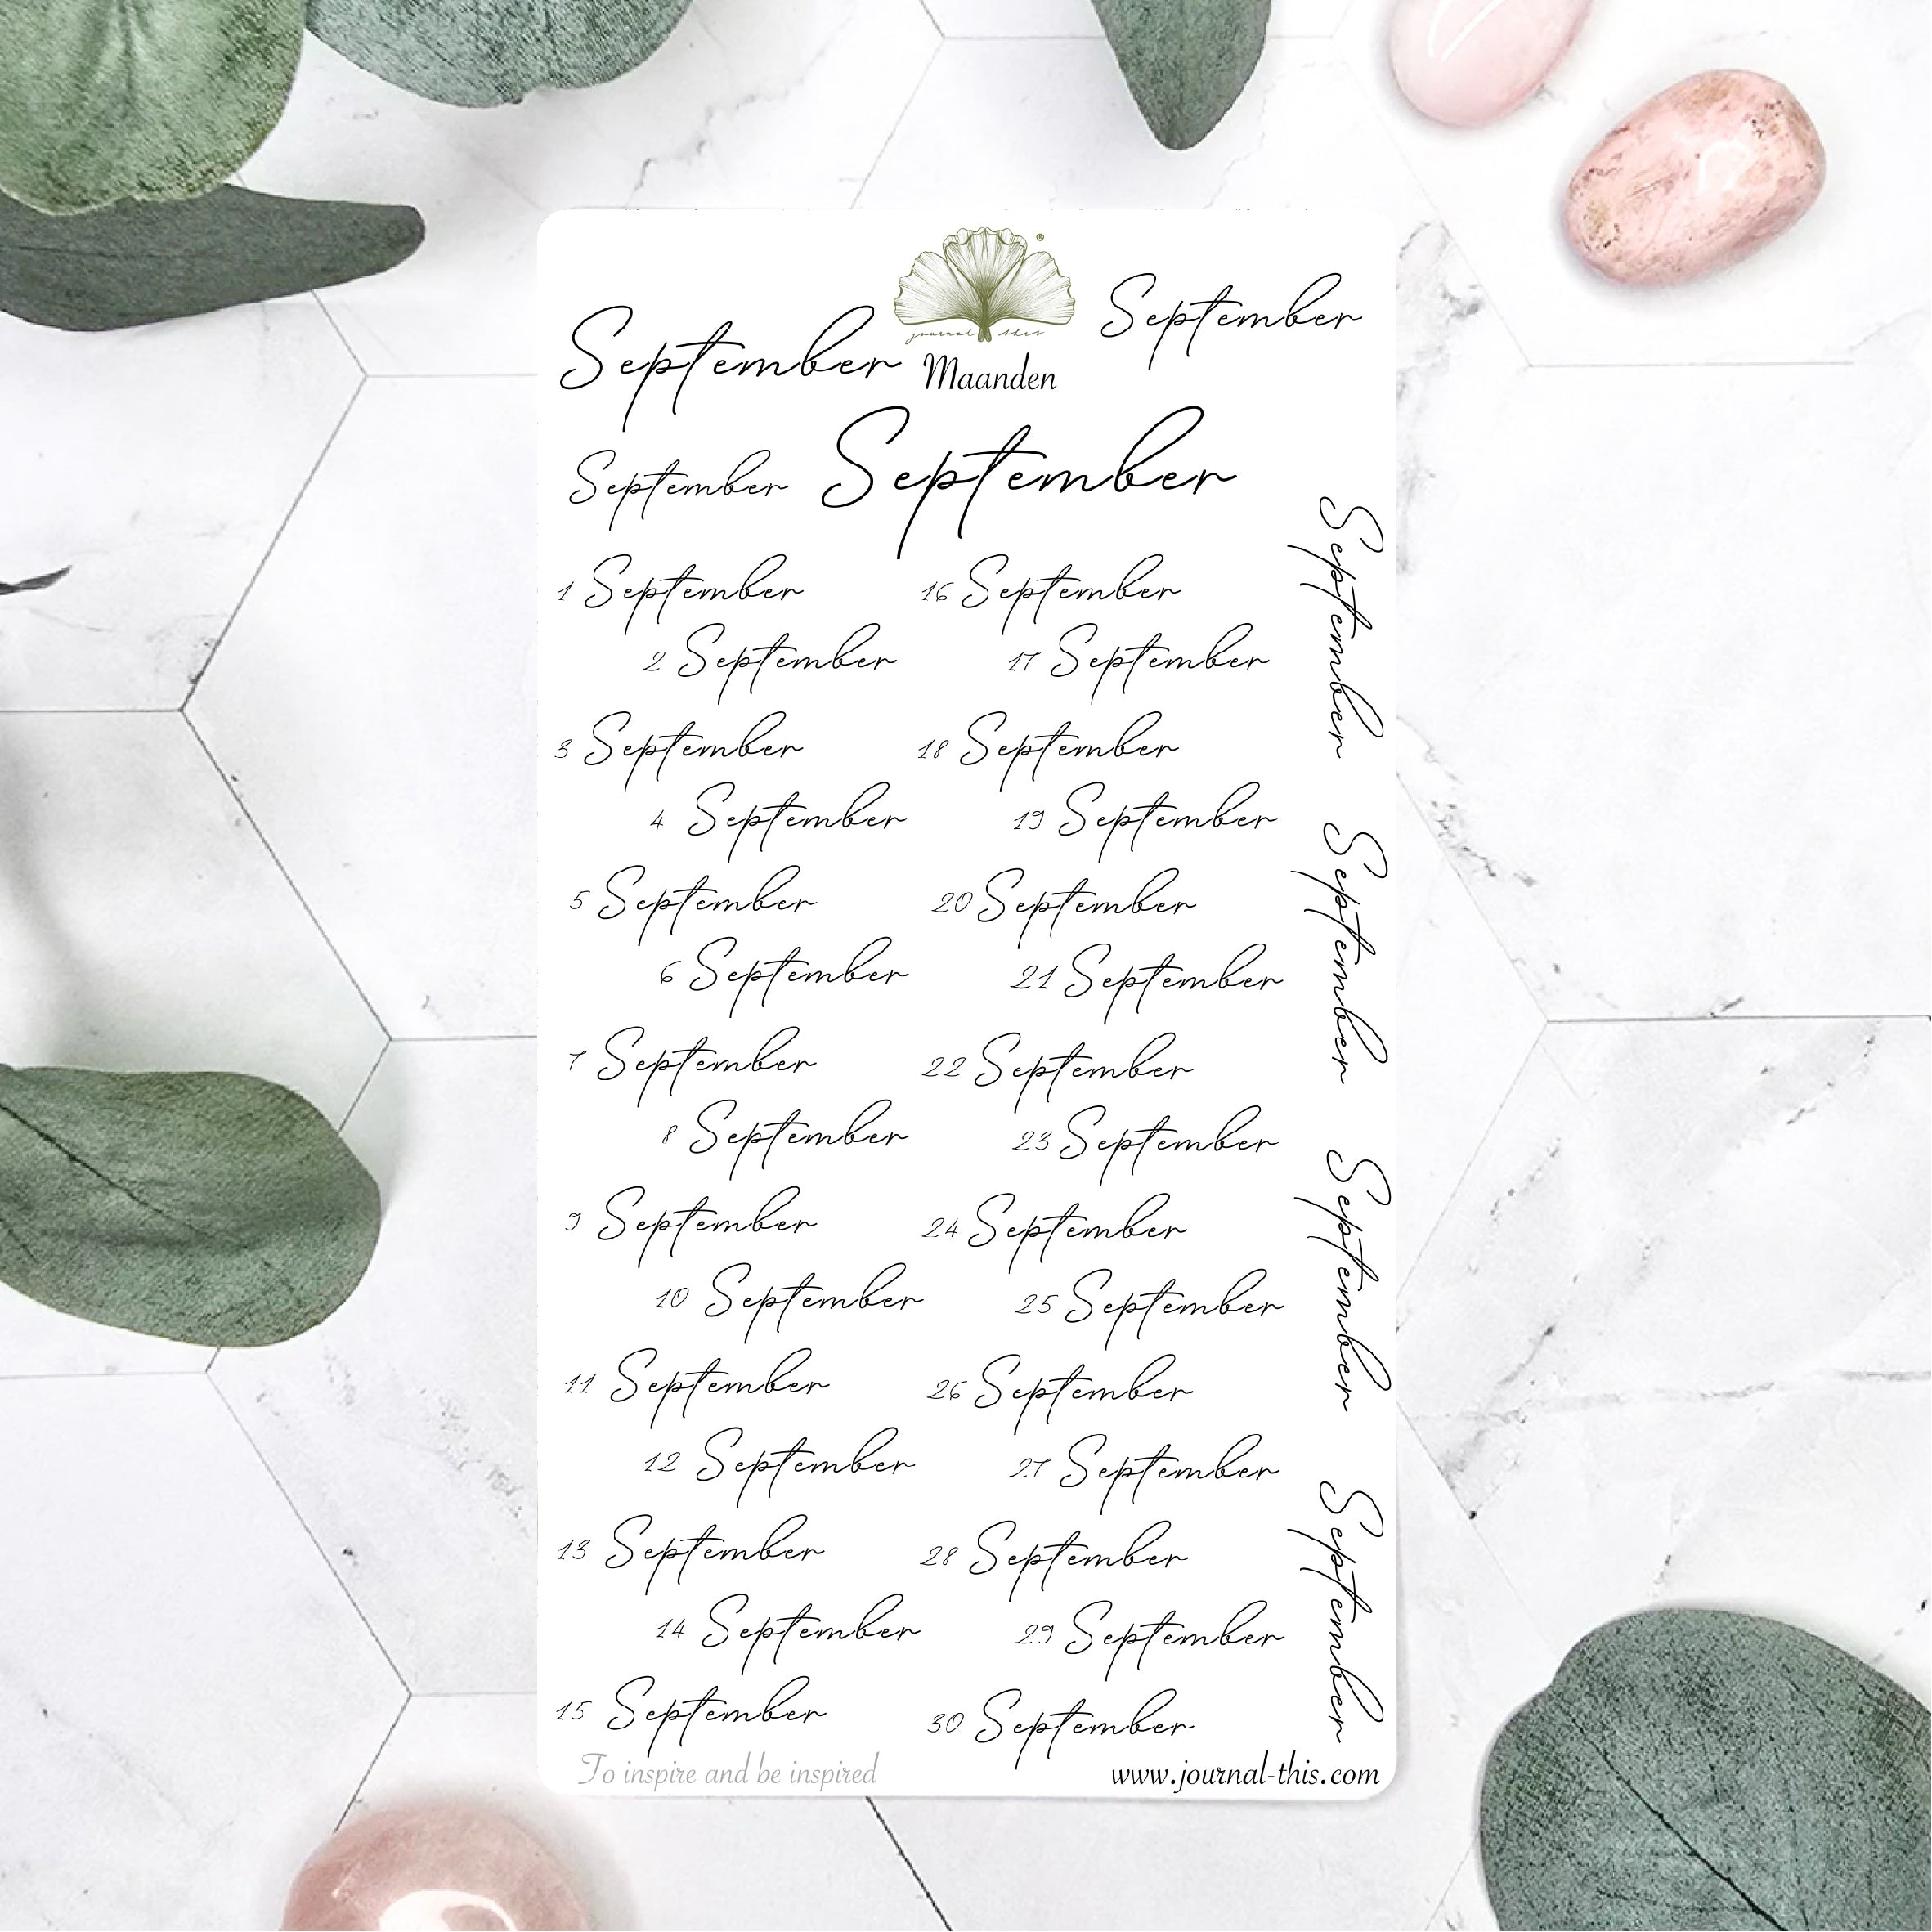 journal this
®
September
September
Maanden
September
September
1 September
2 September
3 September
4 September
5 September
6 September
7 September
8 September
9 September
10 September
11 September
12 September
13 September
14 September
15 September
16 September
17 September
18 September
19 September
20 September
21 September
22 September
23 September
24 September
25 September
26 September
27 September
28 September
29 September
30 September
September
September
September
September
To inspire and be inspired
www.journal-this.com